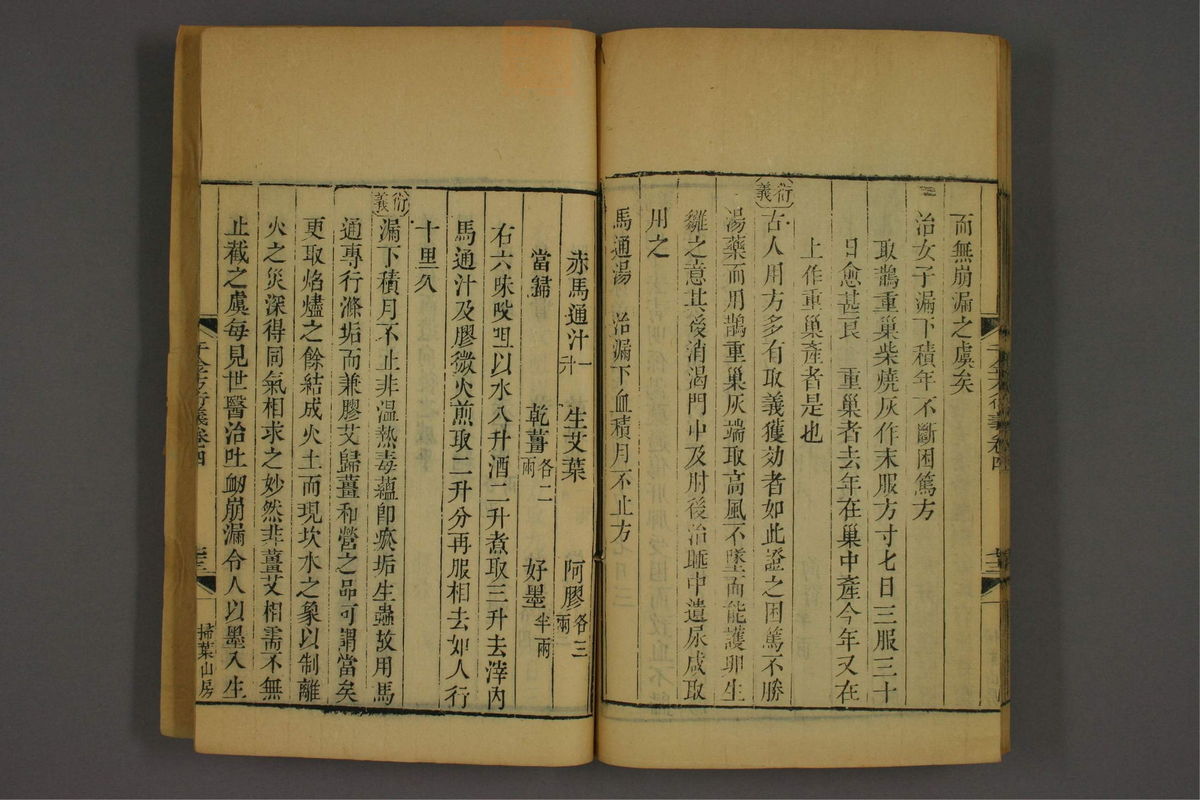 而無崩漏之虞矣
治女子漏下積年不斷困篤方
取鵲重巢柴燒灰作末服方寸七日三服三十
日愈甚良　重巢者去年在巢中產今年又在
上作重巢產者是也
衍義
古人用方多有取義獲効者如此證之困篤不勝
湯藥而用鵲重巢灰端取高風不墜而能護卵生
雛之意其後消渴門中及肘後治睡中遺尿咸取
用之
馬通湯　治漏下血積月不止方
赤馬通汁一升　生艾葉　阿膠各三兩
當歸　乾薑各二兩　好墨半兩
右六味㕮咀以水八升酒二升煮取三升去滓內
馬通汁及膠微火煎取二升分再服相去如人行
十里久
衍義
漏下積月不止非溫熱毒蘊卽瘀垢生蟲故用馬
通專行滌垢而兼膠艾歸薑和營之品可謂當矣
更取焰燼之餘結成火土而現坎水之象以制離
火之災深得同氣相求之妙然非薑艾相需不無
止截之虞每見世醫治吐衂崩漏令人以墨入生
千金方衍義卷四
掃葉山房